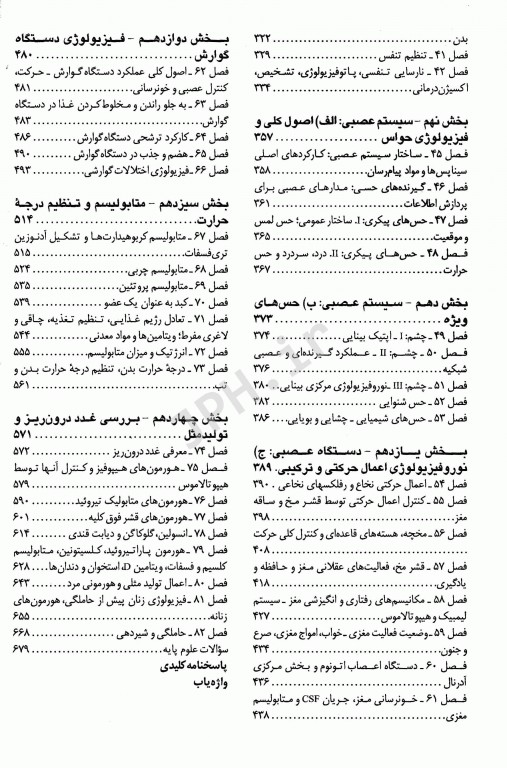 بدن ........ ۳۲۲
فصل ۴۱ ـ تنظیم تنفس ........ ۳۲۹
فصل ۴۲ ـ نارسایی تنفسی، پاتوفیزیولوژی، تشخیص،
اکسیژن‌درمانی ........ ۳۳۴
بخش نهم – سیستم عصبی: الف) اصول کلی و
فیزیولوژی حواس ........ ۳۵۷
فصل ۴۵ ـ ساختار سیستم عصبی: کارکردهای اصلی
سیناپس‌ها و مواد پیام‌رسان ........ ۳۵۸
فصل ۴۶ ـ گیرنده‌های حسی: مدارهای عصبی برای
پردازش اطلاعات ........ ۳۶۱
فصل ۴۷ ـ حس‌های پیکری: I. ساختار عمومی؛ حس لمس
و موقعیت ........ ۳۶۵
فصل ۴۸ ـ حس‌های پیکری: II. درد، سردرد و حس
حرارت ........ ۳۶۷
بخش دهم – سیستم عصبی: ب) حس‌های
ویژه ........ ۳۷۳
فصل ۴۹ ـ چشم: I ـ اپتیک بینایی ........ ۳۷۴
فصل ۵۰ ـ چشم: II ـ عملکرد گیرنده‌ای و عصبی
شبکیه ........ ۳۷۶
فصل ۵۱ ـ چشم: III ـ نوروفیزیولوژی مرکزی بینایی .. ۳۸۰
فصل ۵۲ ـ حس شنوایی ........ ۳۸۲
فصل ۵۳ ـ حس‌های شیمیایی ـ چشایی و بویایی ........ ۳۸۶
بخش یازدهم – دستگاه عصبی: ج)
نوروفیزیولوژی اعمال حرکتی و ترکیبی. ۳۸۹
فصل ۵۴ ـ اعمال حرکتی نخاع و رفلکسهای نخاعی . ۳۹۰
فصل ۵۵ ـ کنترل اعمال حرکتی توسط قشر مخ و ساقه
مغز ........ ۳۹۸
فصل ۵۶ ـ مخچه، هسته‌های قاعده‌ای و کنترل کلی حرکت
........ ۴۰۸
فصل ۵۷ ـ قشر مخ، فعالیت‌های عقلانی مغز و حافظه و
یادگیری ........ ۴۱۸
فصل ۵۸ ـ مکانیسم‌های رفتاری و انگیزشی مغز ـ سیستم
لیمبیک و هیپوتالاموس ........ ۴۲۷
فصل ۵۹ ـ وضعیت فعالیت مغزی ـ خواب، امواج مغزی، صرع
و جنون ........ ۴۳۴
فصل ۶۰ ـ دستگاه اعصاب اتونوم و بخش مرکزی
آدرنال ........ ۴۳۶
فصل ۶۱ ـ خونرسانی مغز، جریان CSF و متابولیسم
مغزی ........ ۴۳۸
بخش دوازدهم – فیزیولوژی دستگاه
گوارش ........ ۴۸۰
فصل ۶۲ ـ اصول کلی عملکرد دستگاه گوارش ـ حرکت،
کنترل عصبی و خونرسانی ........ ۴۸۱
فصل ۶۳ ـ به جلو راندن و مخلوط کردن غذا در دستگاه
گوارش ........ ۴۸۳
فصل ۶۴ ـ کارکرد ترشحی دستگاه گوارش ........ ۴۸۶
فصل ۶۵ ـ هضم و جذب در دستگاه گوارش ........ ۴۹۰
فصل ۶۶ ـ فیزیولوژی اختلالات گوارشی ........ ۴۹۳
بخش سیزدهم – متابولیسم و تنظیم درجهٔ
حرارت ........ ۵۱۴
فصل ۶۷ ـ متابولیسم کربوهیدارت‌ها و تشکیل آدنوزین
تری‌فسفات ........ ۵۱۵
فصل ۶۸ ـ متابولیسم چربی ........ ۵۲۴
فصل ۶۹ ـ متابولیسم پروتئین ........ ۵۳۵
فصل ۷۰ ـ کبد به عنوان یک عضو ........ ۵۳۹
فصل ۷۱ ـ تعادل رژیم غذایی، تنظیم تغذیه، چاقی و
لاغری مفرط؛ ویتامین‌ها و مواد معدنی ........ ۵۴۴
فصل ۷۲ ـ انرژتیک و میزان متابولیسم ........ ۵۵۵
فصل ۷۳ ـ درجهٔ حرارت بدن، تنظیم درجهٔ حرارت بدن و
تب ........ ۵۶۱
بخش چهاردهم – بررسی غدد درون‌ریز و
تولیدمثل ........ ۵۷۱
فصل ۷۴ ـ معرفی غدد درون‌ریز ........ ۵۷۲
فصل ۷۵ ـ هورمون‌های هیپوفیز و کنترل آنها توسط
هیپوتالاموس ........ ۵۷۹
فصل ۷۶ ـ هورمون‌های متابولیک تیروئید ........ ۵۹۰
فصل ۷۷ ـ هورمون‌های قشر فوق کلیه ........ ۶۰۱
فصل ۷۸ ـ انسولین، گلوکاگن و دیابت قندی ........ ۶۱۴
فصل ۷۹ ـ هورمون پاراتیروئید، کلسیتونین، متابولیسم
کلسیم و فسفات، ویتامین D، استخوان و دندان‌ها ........ ۶۲۸
فصل ۸۰ ـ اعمال تولید مثلی و هورمونی مرد ........ ۶۴۳
فصل ۸۱ ـ فیزیولوژی زنان پیش از حاملگی، هورمون‌های
زنانه ........ ۶۵۵
فصل ۸۲ ـ حاملگی و شیردهی ........ ۶۶۸
سؤالات علوم پایه ........ ۶۷۹
پاسخنامه کلیدی
واژه‌یاب